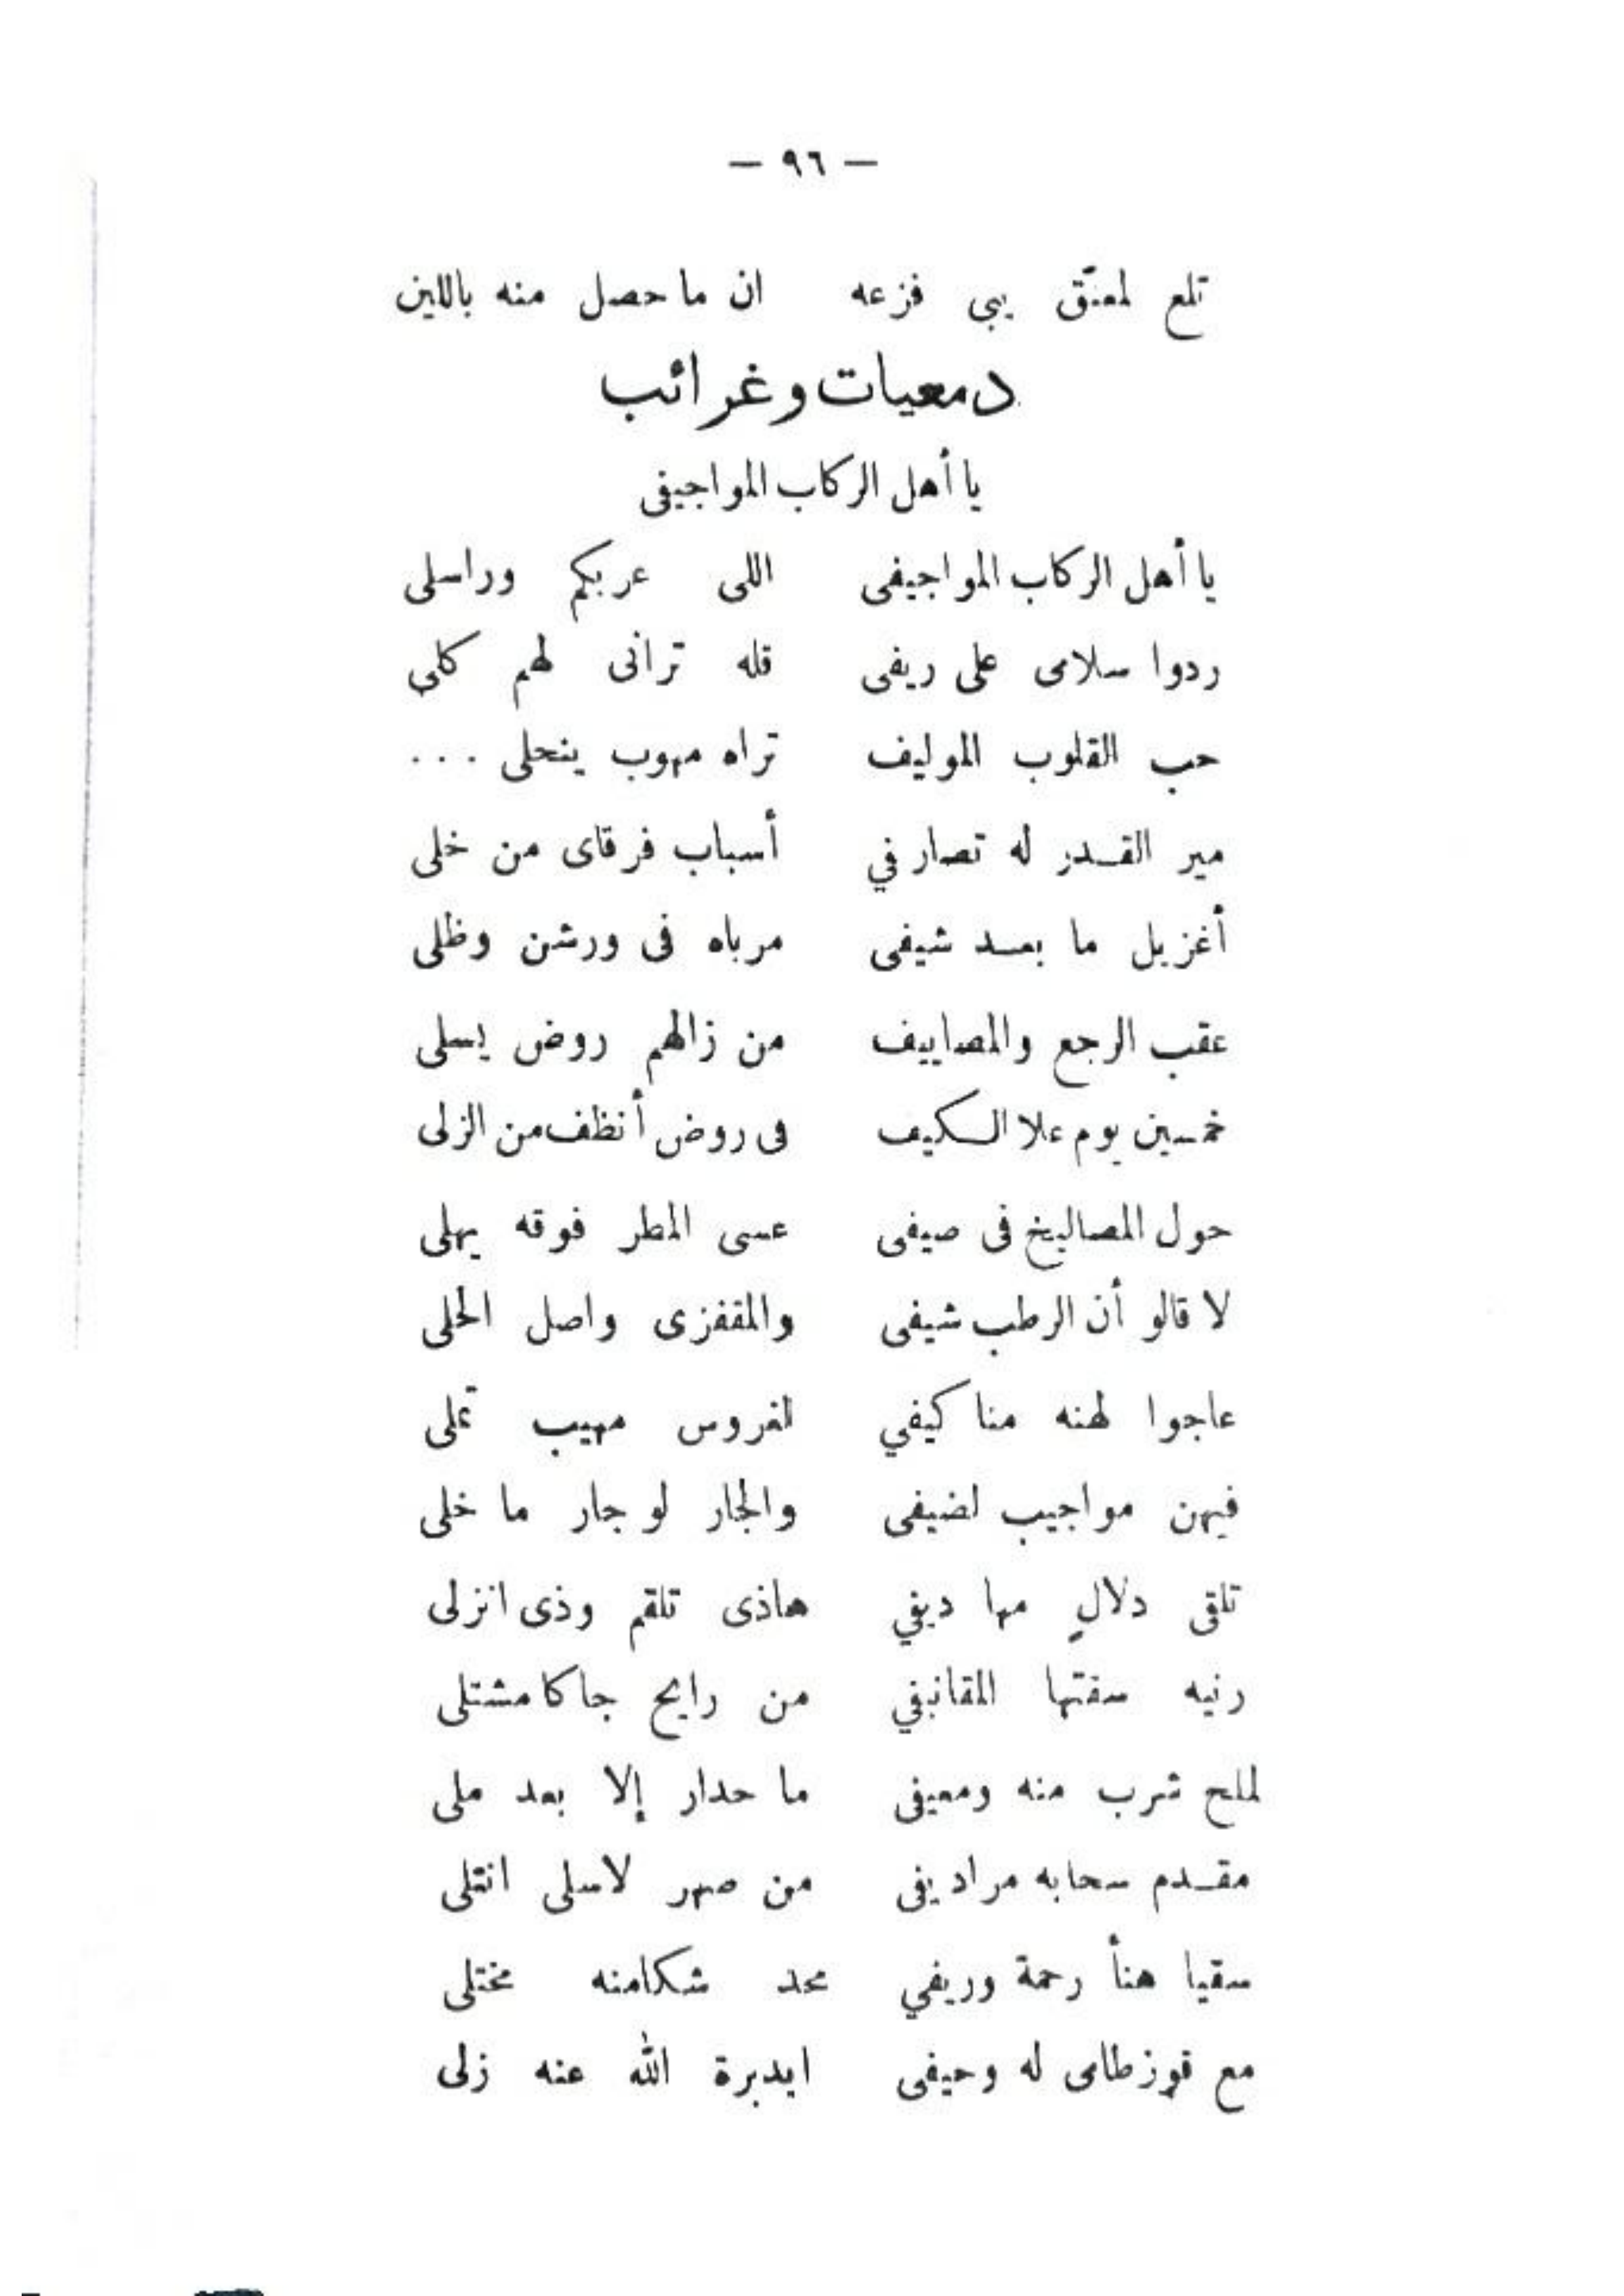 — ٩٦ —
تلع لمعنّق يبى فزعه ان ما حصل منه باللين
دمعيات وغرائب
يا أهل الركاب المواجيفى
يا أهل الركاب المواجيفى اللى عربكم وراسلى
ردوا سلامى على ريفى قله ترانى لهم كلى
حب القلوب المواليف تراه مهوب ينحلى ...
مير القدر له تصارفي أسباب فرقاى من خلى
أغزيل ما بعد شيفى مرباه فى ورشن وظلى
عقب الرجع والمصاييف من زالهم روض يسلى
خمسين يوم علا السكيف فى روض أنظف من الزلى
حول المصاليخ فى صيفى عسى المطر فوقه يهلى
لا قالو أن الرطب شيفى والمقفزى واصل الحلى
عاجوا لهنه منا كيفي لغروس مهيب تملى
فيهن مواجيب لضيفى والجار لو جار ما خلى
تلقى دلالٍ مها ديفي هاذى تلقم وذى انزلى
رنيه سفتها المقانيفي من رايح جا كا مشتلى
لملح شرب منه ومعيفى ما حدار إلا بعد ملى
مقدم سحابه مراديفى من صهر لاسلى انتلى
سقيا هنأ رحمة وريفي محد شكامنه مختلى
مع قوز طامى له وحيفى ايدبرة الله عنه زلى